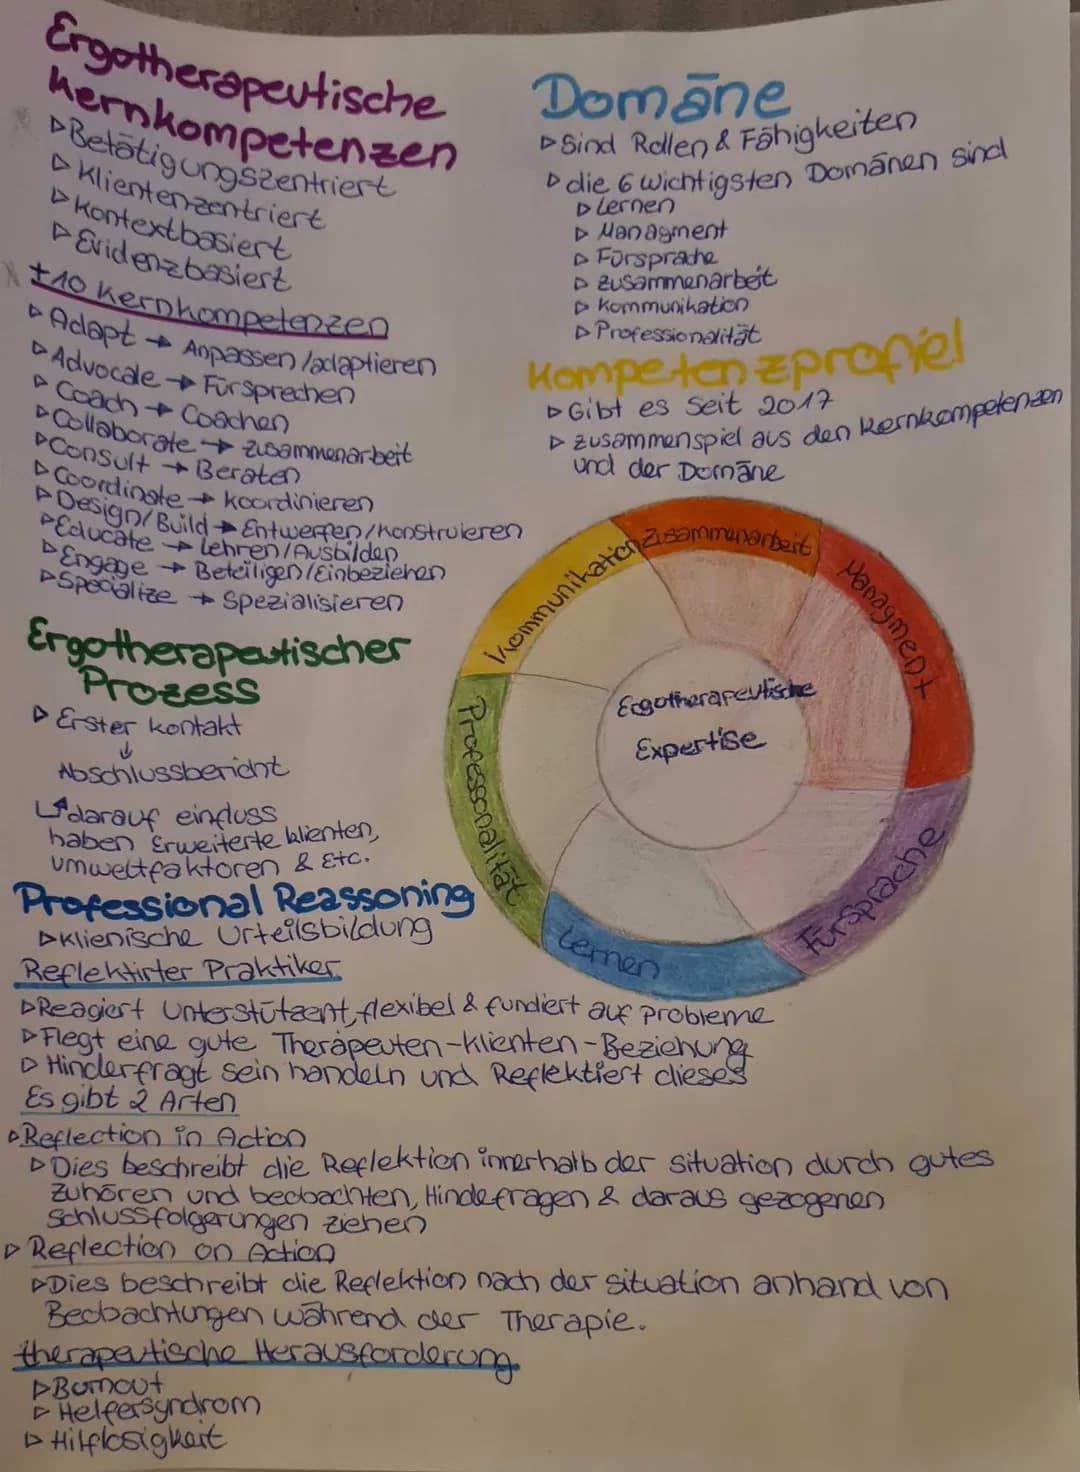 Ergotherapeutische
Kernkompetenzen
▷Betätigungszentriert
▷Klientenzentriert
▷Kontextbasiert
▷Evidenzbasiert
+10 Kernkompetenzen
▷Adapt → Anpassen/adaptieren
▷Advocate → Fürsprechen
▷Coach → Coachen
▷Collaborate → Zusammenarbeit
▷Consult → Beraten
▷Coordinate → Koordinieren
▷Design/Build → Entwerfen/Konstruieren
▷Educate → Lehren/Ausbilden
▷Engage → Beteiligen/Einbeziehen
▷Specialize → Spezialisieren
Ergotherapeutischer
Prozess
▷ Erster Kontakt
↓
Abschlussbericht
↳darauf einfluss
haben Erweiterte klienten,
umweltfaktoren & Etc.
Professional Reassoning
▷Klienische Urteilsbildung
Reflektirter Praktiker
▷Reagiert Unterstützent, flexibel & fundiert auf Probleme
▷Flegt eine gute Therapeuten-Klienten-Beziehung
▷Hinderfragt sein handeln und Reflektiert dieses
Es gibt 2 Arten
▷Reflection in Action
▷Dies beschreibt die Reflektion innerhalb der situation durch gutes
Zuhören und beobachten, Hindefragen & daraus gezogenen
Schlussfolgerungen ziehen
▷ Reflection on Action
▷Dies beschreibt die Reflektion nach der situation anhand von
Beobachtungen während der Therapie.
therapeutische Herausforderung
▷Burnout
▷Helfersyndrom
▷Hilflosigkeit
Domäne
▷Sind Rollen & Fähigkeiten
▷die 6 wichtigsten Domänen sind
▷Lernen
▷Managment
▷Fürsprache
▷Zusammenarbeit
▷Kommunikation
▷Professionalität
Kompetenzprofiel
▷Gibt es seit 2017
▷Zusammenspiel aus den Kernkompetenzen
und der Domäne
Kommunikation
Zusammenarbeit
Managment
Fürsprache
Lernen
Professonalität
Ergotherapeutische
Expertise